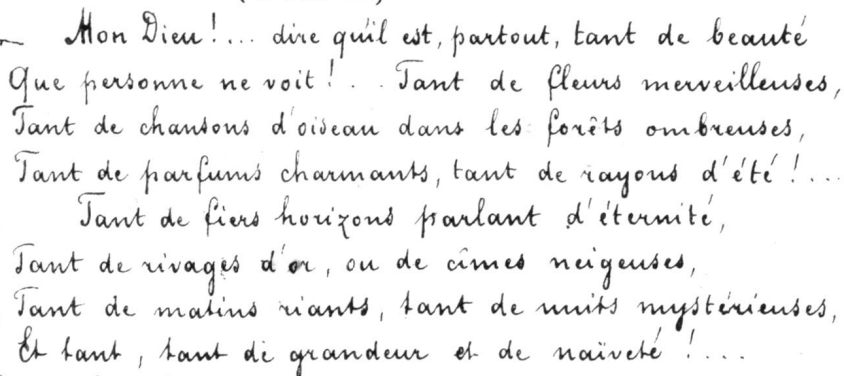 — Mon Dieu !... dire qu'il est, partout, tant de beauté
Que personne ne voit !... Tant de fleurs merveilleuses,
Tant de chansons d'oiseau dans les forêts ombreuses,
Tant de parfums charmants, tant de rayons d'été !...
Tant de fiers horizons parlant d'éternité,
Tant de rivages d'or, ou de cîmes neigeuses,
Tant de matins riants, tant de nuits mystérieuses,
Et tant, tant de grandeur et de naïveté !...